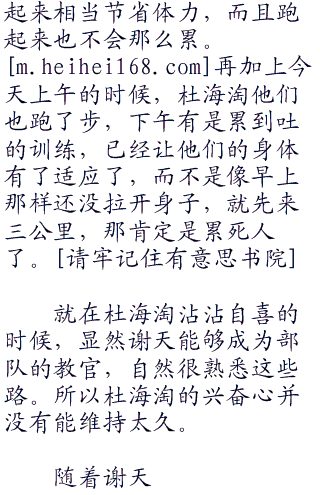 起来相当节省体力，而且跑
起来也不会那么累。
[m.heihei168.com]再加上今
天上午的时候，杜海淘他们
也跑了步，下午有是累到吐
的训练，已经让他们的身体
有了适应了，而不是像早上
那样还没拉开身子，就先来
三公里，那肯定是累死人
了。[请牢记住有意思书院]
就在杜海淘沾沾自喜的
时候，显然谢天能够成为部
队的教官，自然很熟悉这些
路。所以杜海淘的兴奋心并
没有能维持太久。
随着谢天